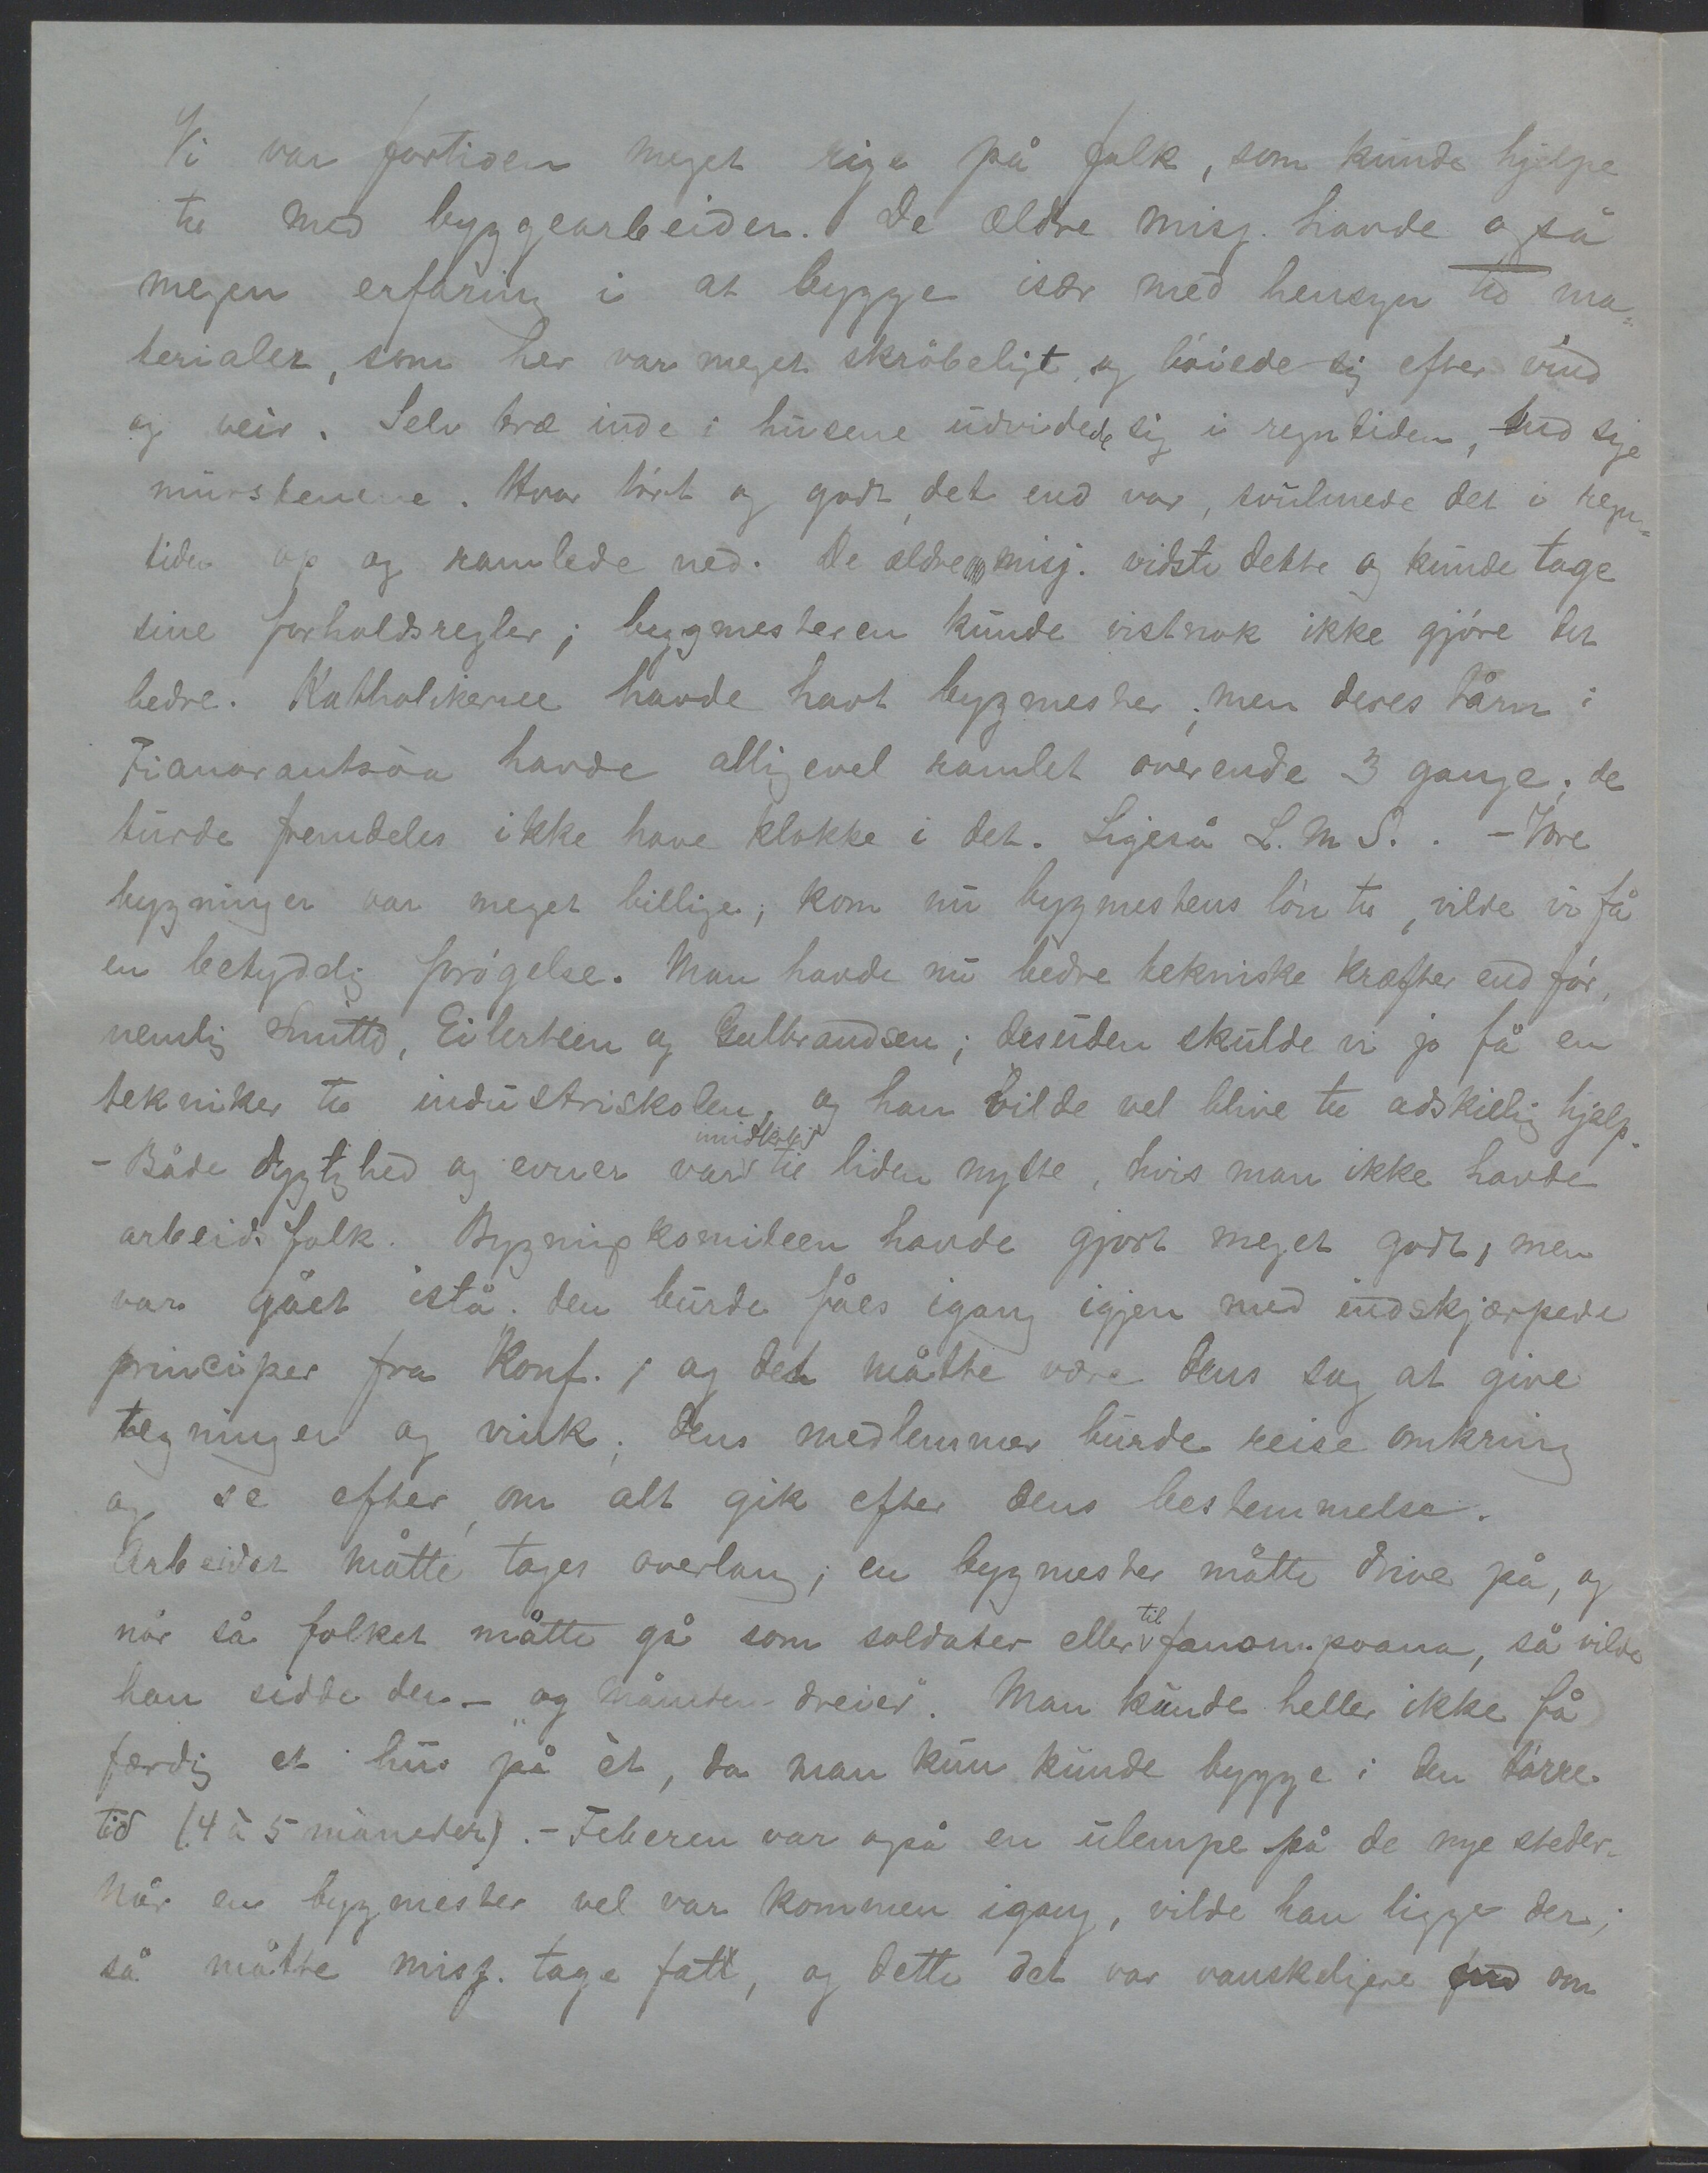 Vi var fortiden meget rige på folk, som kunde hjelpe
til med byggearbeider. De ældre misj. havde også
megen erfaring i at bygge især med hensyn til ma-
terialer, som her var meget skröbeligt og böiede sig efter vind
og veir. Selv træ inde i husene udvidede sig i regntiden, end sige
murstenene. Hvor tört og godt det end var, svulmede det i regn-
tiden op og ramlede ned. De ældre misj. vidste dette og kunde tage
sine forholdsregler; bygmesteren kunde vistnok ikke gjöre det
bedre. Katholikerne havde havt bygmester, men deres tårn i
Fianarantsòa havde alligevel ramlet overende 3 gange; de
turde fremdeles ikke have klokke i det. Ligeså L. M. S. . - Vore
bygninger var meget billige; kom nu bygmestens lön til, vilde vi få
en betydelig forögelse. Man havde nu bedre tekniske kræfter end för,
nemlig Smith, Eilertsen og Gulbrandsen; desuden skulde vi jo få en
tekniker til industriskolen, og han vilde vel blive til adskillig hjælp.
- Både dygtighed og evner var imidlertid til liden nytte, hvis man ikke havde
arbeidsfolk. Bygningskomiteen havde gjort meget godt, men
var gået istå; den burde fåes igang igjen med indskjærpede
principer fra Konf., og det måtte være dens sag at give
tegninger og vink; dens medlemmer burde reise omkring
og se efter, om alt gik efter dens bestemmelse.
Arbeidet måtte tages overlang; en bygmester måtte drive på, og
når så folket måtte gå som soldater eller til fanompoana, så vilde
han sidde der - "og månden dreier". Man kunde heller ikke få
færdig et hus på ét, da man kun kunde bygge i den törre
tid (4 à 5 måneder). - Feberen var også en ulempe på de nye steder.
Når en bygmester vel var kommen igang, vilde han ligge der;
så måtte misj. tage fatt, og dette det var vanskeligere end om